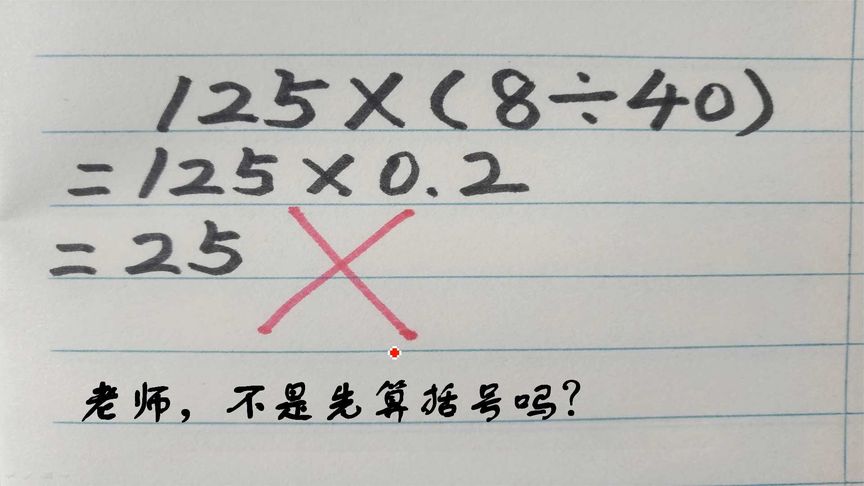 125×(8÷40)
=125×0.2
=25
老师，不是先算括号吗？